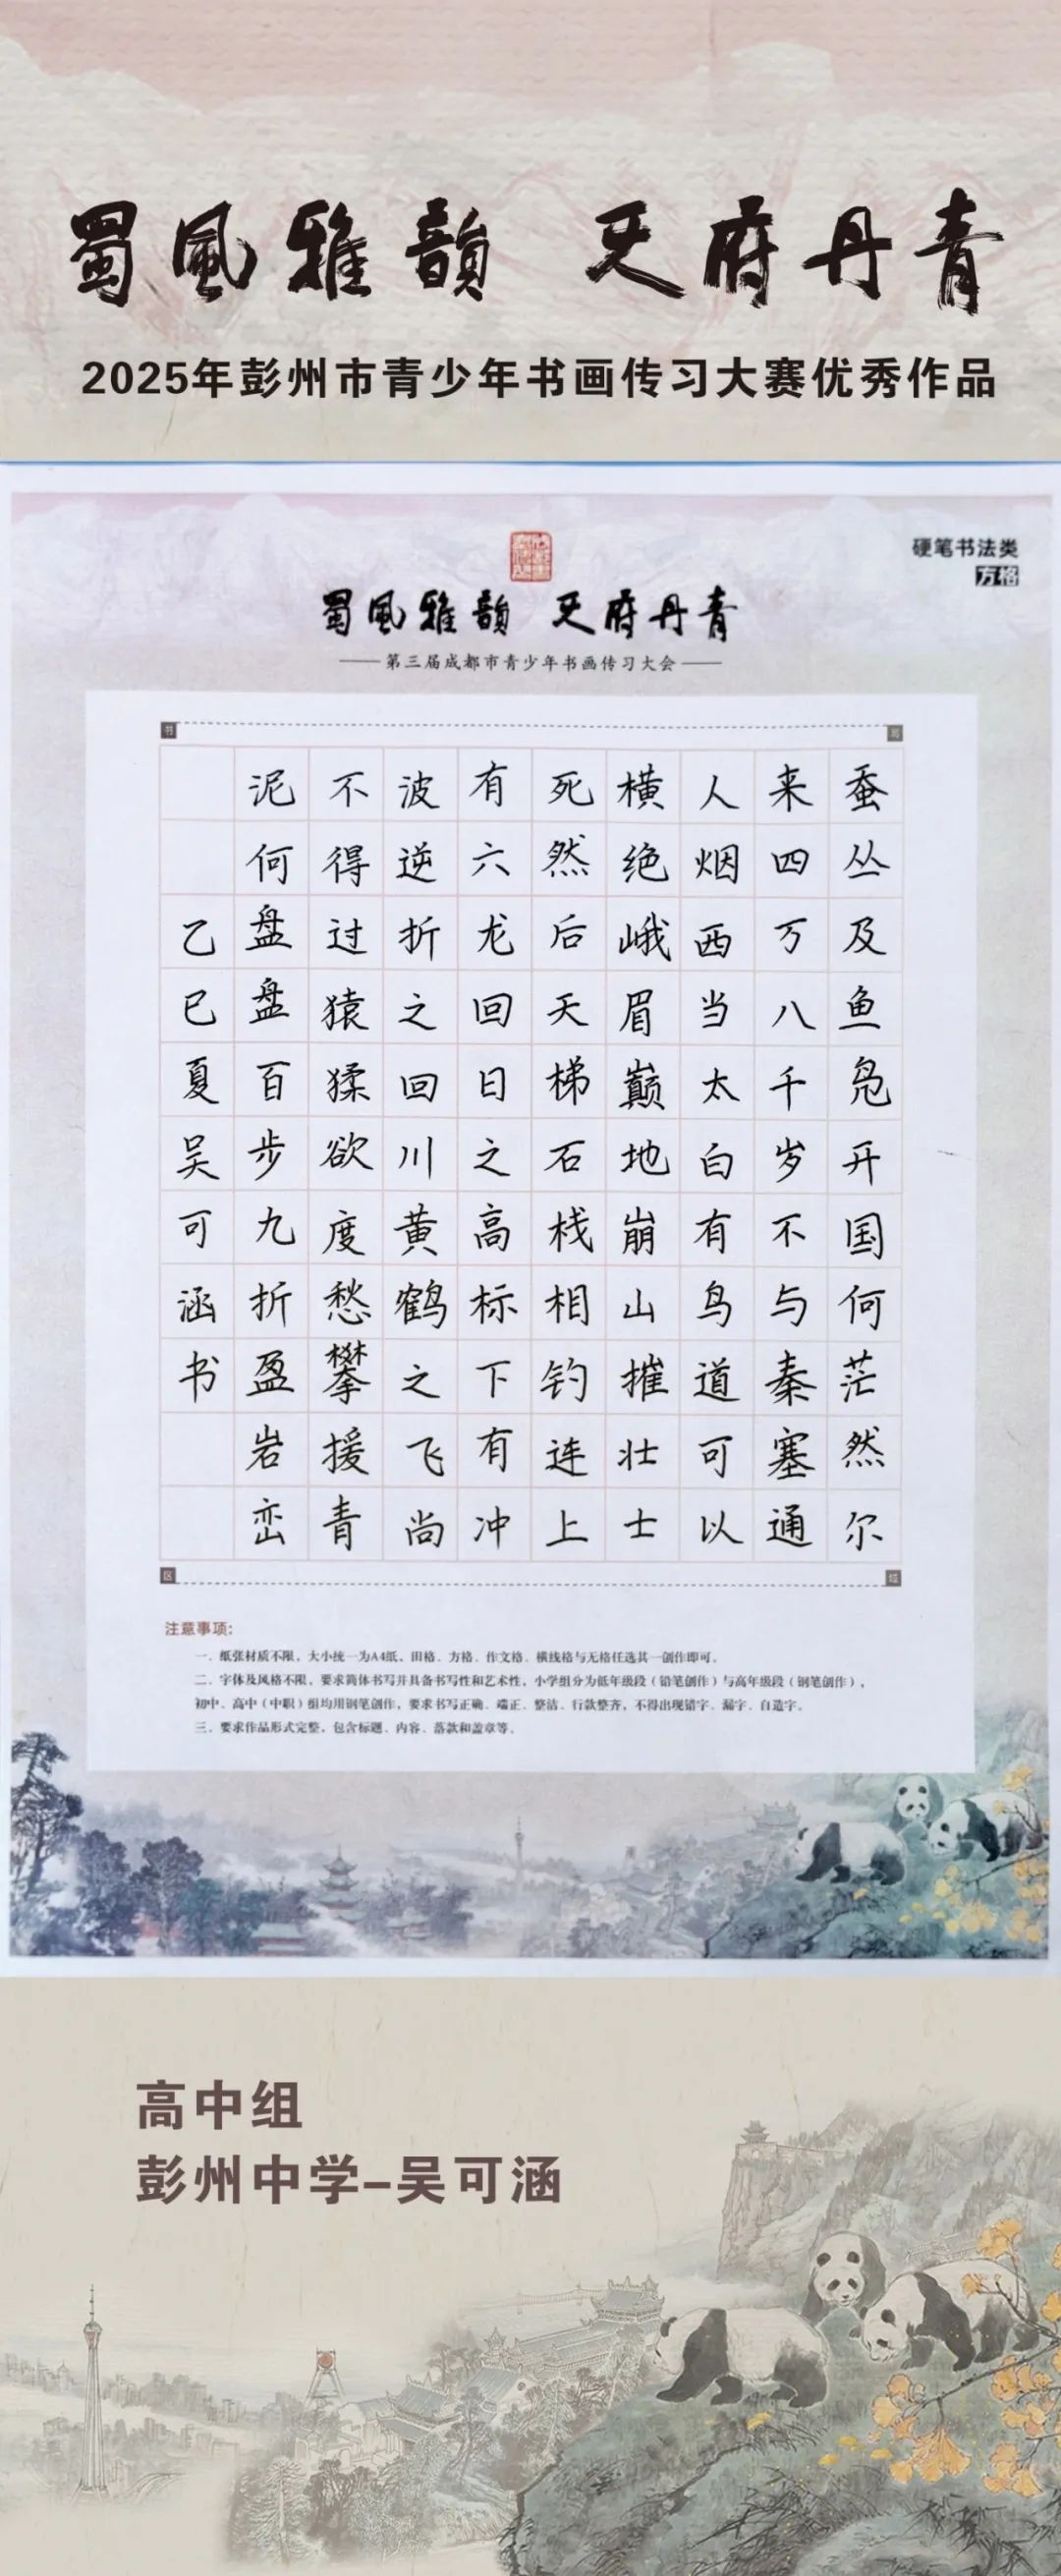 蜀風雅韻 天府丹青
2025年彭州市青少年书画传习大赛优秀作品
硬笔书法类
方格
蜀風雅韻 天府丹青
第三届成都市青少年书画传习大会
蚕丛及鱼凫开国何茫然尔
来四万八千岁不与秦塞通
人烟西当太白有鸟道可以
横绝峨眉巅地崩山摧壮士
死然后天梯石栈相钓连上
有六龙回日之高标下有冲
波逆折之回川黄鹤之飞尚
不得过猿猱欲度愁攀援青
泥何盘盘百步九折盈岩峦
乙巳夏吴可涵书
注意事项:
一、纸张材质不限，大小统一为A4纸，田格、方格、作文格、横线格与无格任选其一创作即可。
二、字体及风格不限，要求简体书写并具备书写性和艺术性，小学组分为低年级段（铅笔创作）与高年级段（钢笔创作），
初中、高中（中职）组均用钢笔创作，要求书写正确、端正、整洁、行款整齐，不得出现错字、漏字、自造字。
三、要求作品形式完整，包含标题、内容、落款和盖章等。
高中组
彭州中学-吴可涵